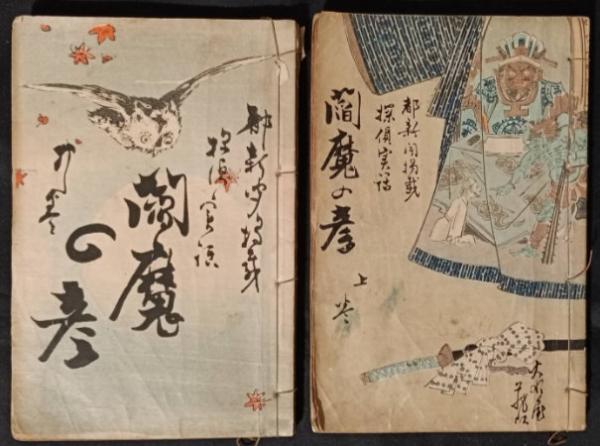 都新聞掲載
探偵實話
閻魔の彦
上巻
都新聞掲載
探偵實話
閻魔の彦
下巻